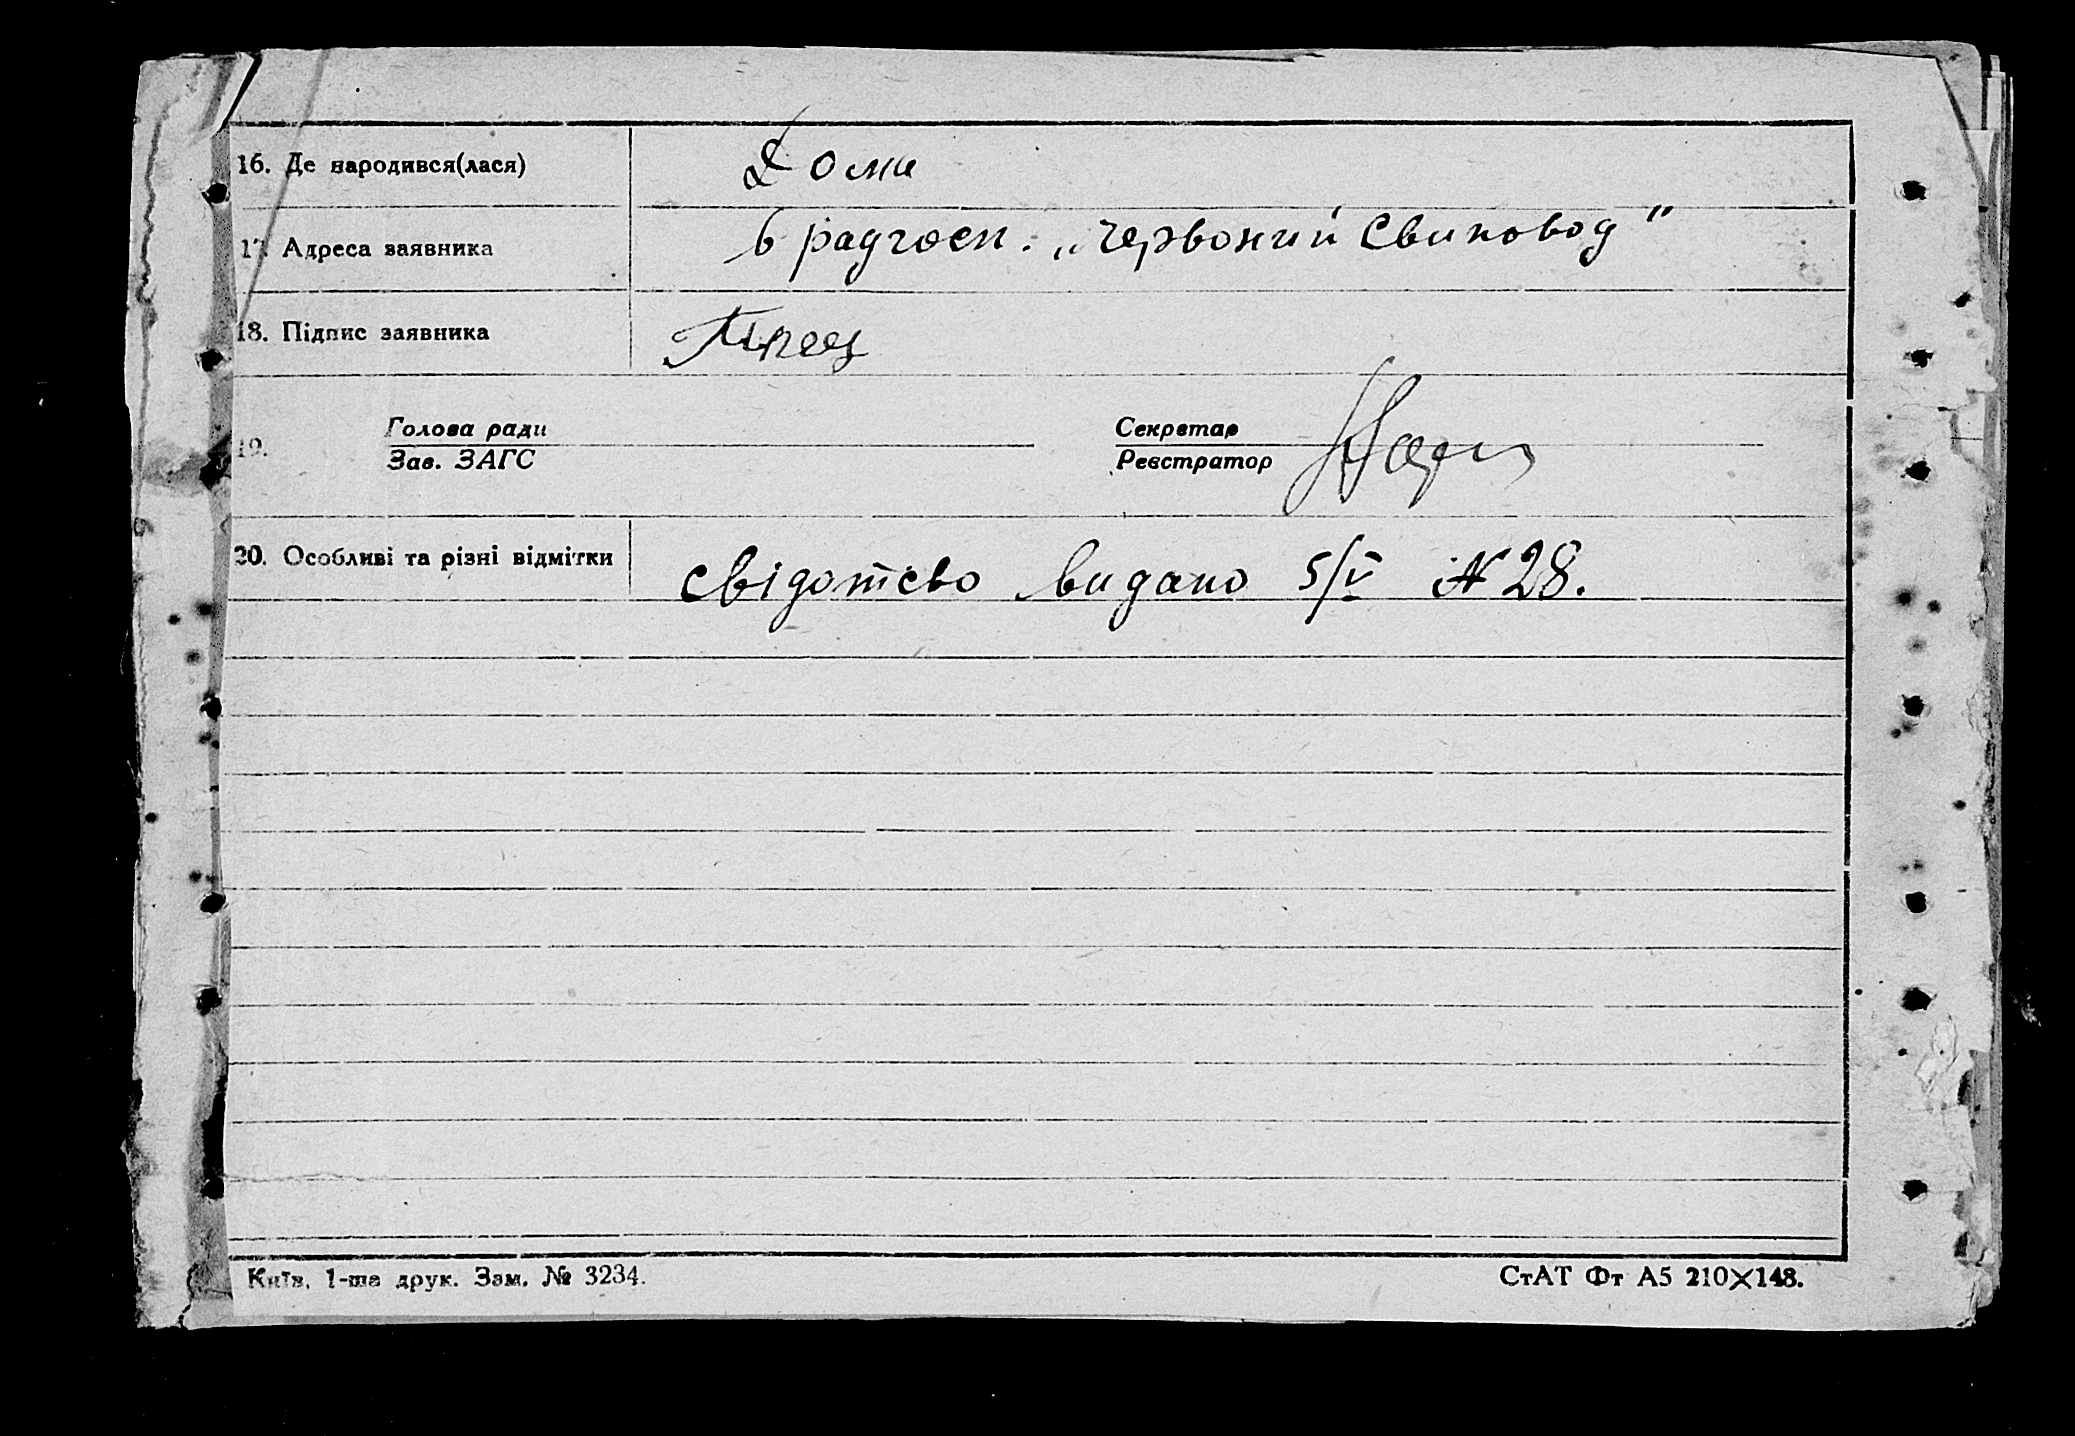 16. Де народився(лася) Дома
17. Адреса заявника в радгосп. „Червоний Свиновод"
18. Підпис заявника
Голова ради Секретар
19.
Зав. ЗАГС Реєстратор
20. Особливі та різні відмітки свідотсво видано 5/V № 28.
Київ, 1-ша друк. Зам. № 3234. СтАТ Фт А5 210×148.